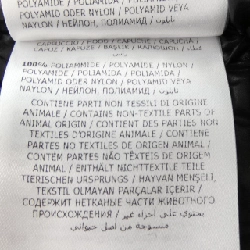 POLYAMIDE / POLYAMID /
POLYAMID ODER NYLON / POLYAMID VEYA
NAYLON / НЕЙЛОН, ПОЛИАМИД / نايلون
CAPUCHE / KAPUZE / BAŞLIK / КАПЮШОН /
100% POLIAMMIDE / POLYAMIDE / NYLON /
POLYAMIDE / POLIAMIDA / POLYAMID /
POLYAMID ODER NYLON / POLYAMID VEYA
NAYLON / НЕЙЛОН, ПОЛИАМИД / نايلون
CONTIENE PARTI NON TESSILI DI ORIGINE
ANIMALE / CONTAINS NON-TEXTILE PARTS OF
ANIMAL ORIGIN / CONTIENT DES PARTIES NON
TEXTILES D'ORIGINE ANIMALE / CONTIENE
PARTES NO TEXTILES DE ORIGEN ANIMAL /
CONTÉM PARTES NÃO TÊXTEIS DE ORIGEM
ANIMAL / ENTHÄLT NICHTTEXTILE TEILE
TIERISCHEN URSPRUNGS / HAYVAN MENŞELİ,
TEKSTIL OLMAYAN PARÇALAR İÇERİR /
СОДЕРЖИТ НЕТКАНЫЕ ЧАСТИ ЖИВОТНОГО
ПРОИСХОЖДЕНИЯ / يحتوي على أجزاء غير
منسوجة من أصل حيواني